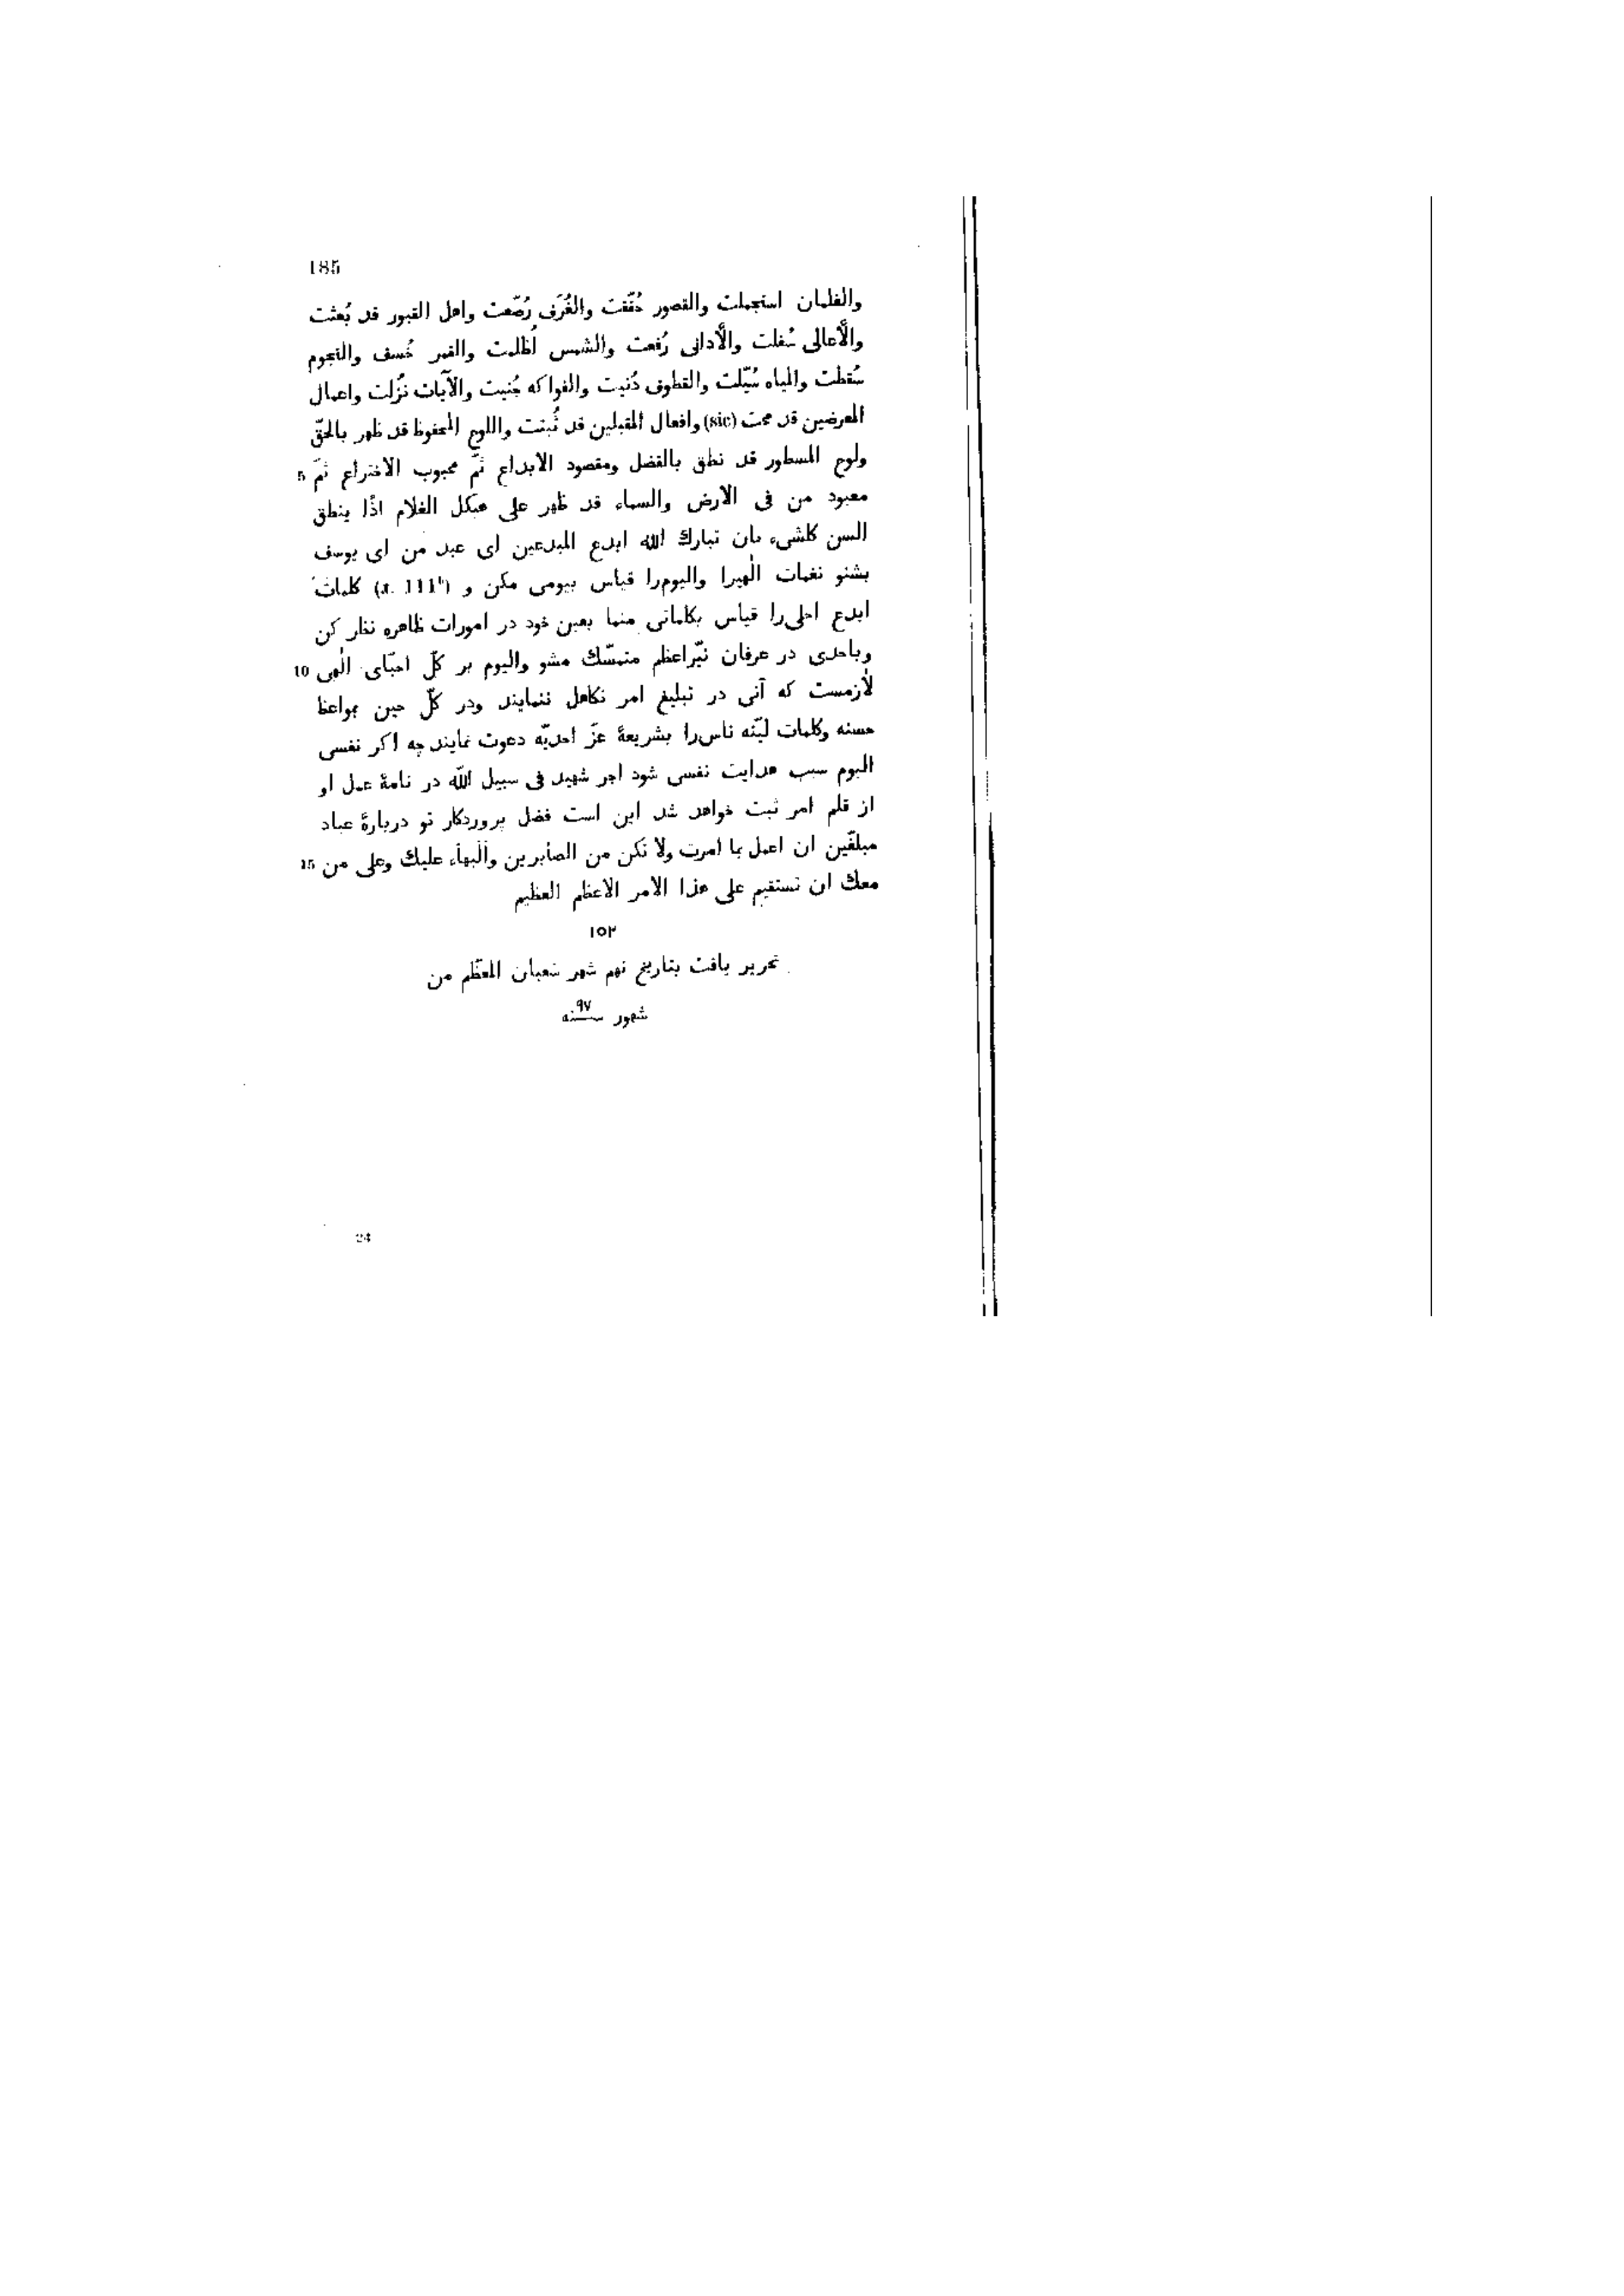 185
والغلمان استجملت والقصور حُقّقت والغُرَف رُصّعت واهل القبور قد بُعثت
والأعالى سُفلت والأدانى رُفعت والشمس أُظلمت والقمر خُسف والنجوم
سُقطت والمياه سُيّلت والقطوف دُنيت والفواكه جُنيت والآيات نُزّلت واعمال
المعرضين قد محت (sic) وافعال المقبلين قد ثُبتت واللوح المحفوظ قد ظهر بالحقّ
ولوح المسطور قد نطق بالفضل ومقصود الابداع ثمّ محبوب الاختراع ثمّ 5
معبود من فى الارض والسماء قد ظهر على هيكل الغلام اذًا ينطق
السن كلشىء بان تبارك الله ابدع المبدعين اى عبد من اى يوسف
بشنو نغمات الٰهيرا واليومرا قياس بيومى مكن و كلمات
ابدع احلى را قياس بكلماتى منما بعين خود در امورات ظاهره نظر كن
وباحدى در عرفان نيّر اعظم متمسّك مشو واليوم بر كلّ احبّاى الٰهى 10
لازمست كه آنى در تبليغ امر تكاهل ننمايند ودر كلّ حين بمواعظ
حسنه وكلمات ليّنه ناس را بشريعهٔ عزّ احديّه دعوت نمايند چه اكر نفسى
اليوم سبب هدايت نفسى شود اجر شهيد فى سبيل الله در نامهٔ عمل او
از قلم امر ثبت خواهد شد اين است فضل پروردكار تو دربارهٔ عباد
مبلّغين ان اعمل بما امرت ولا تكن من الصابرين والبهاء عليك وعلى من 15
معك ان تستقيم على هذا الامر الاعظم العظيم
١٥٢
تحرير يافت بتاريخ نهم شهر شعبان المعظّم من
شهور سنه ٩٧
24